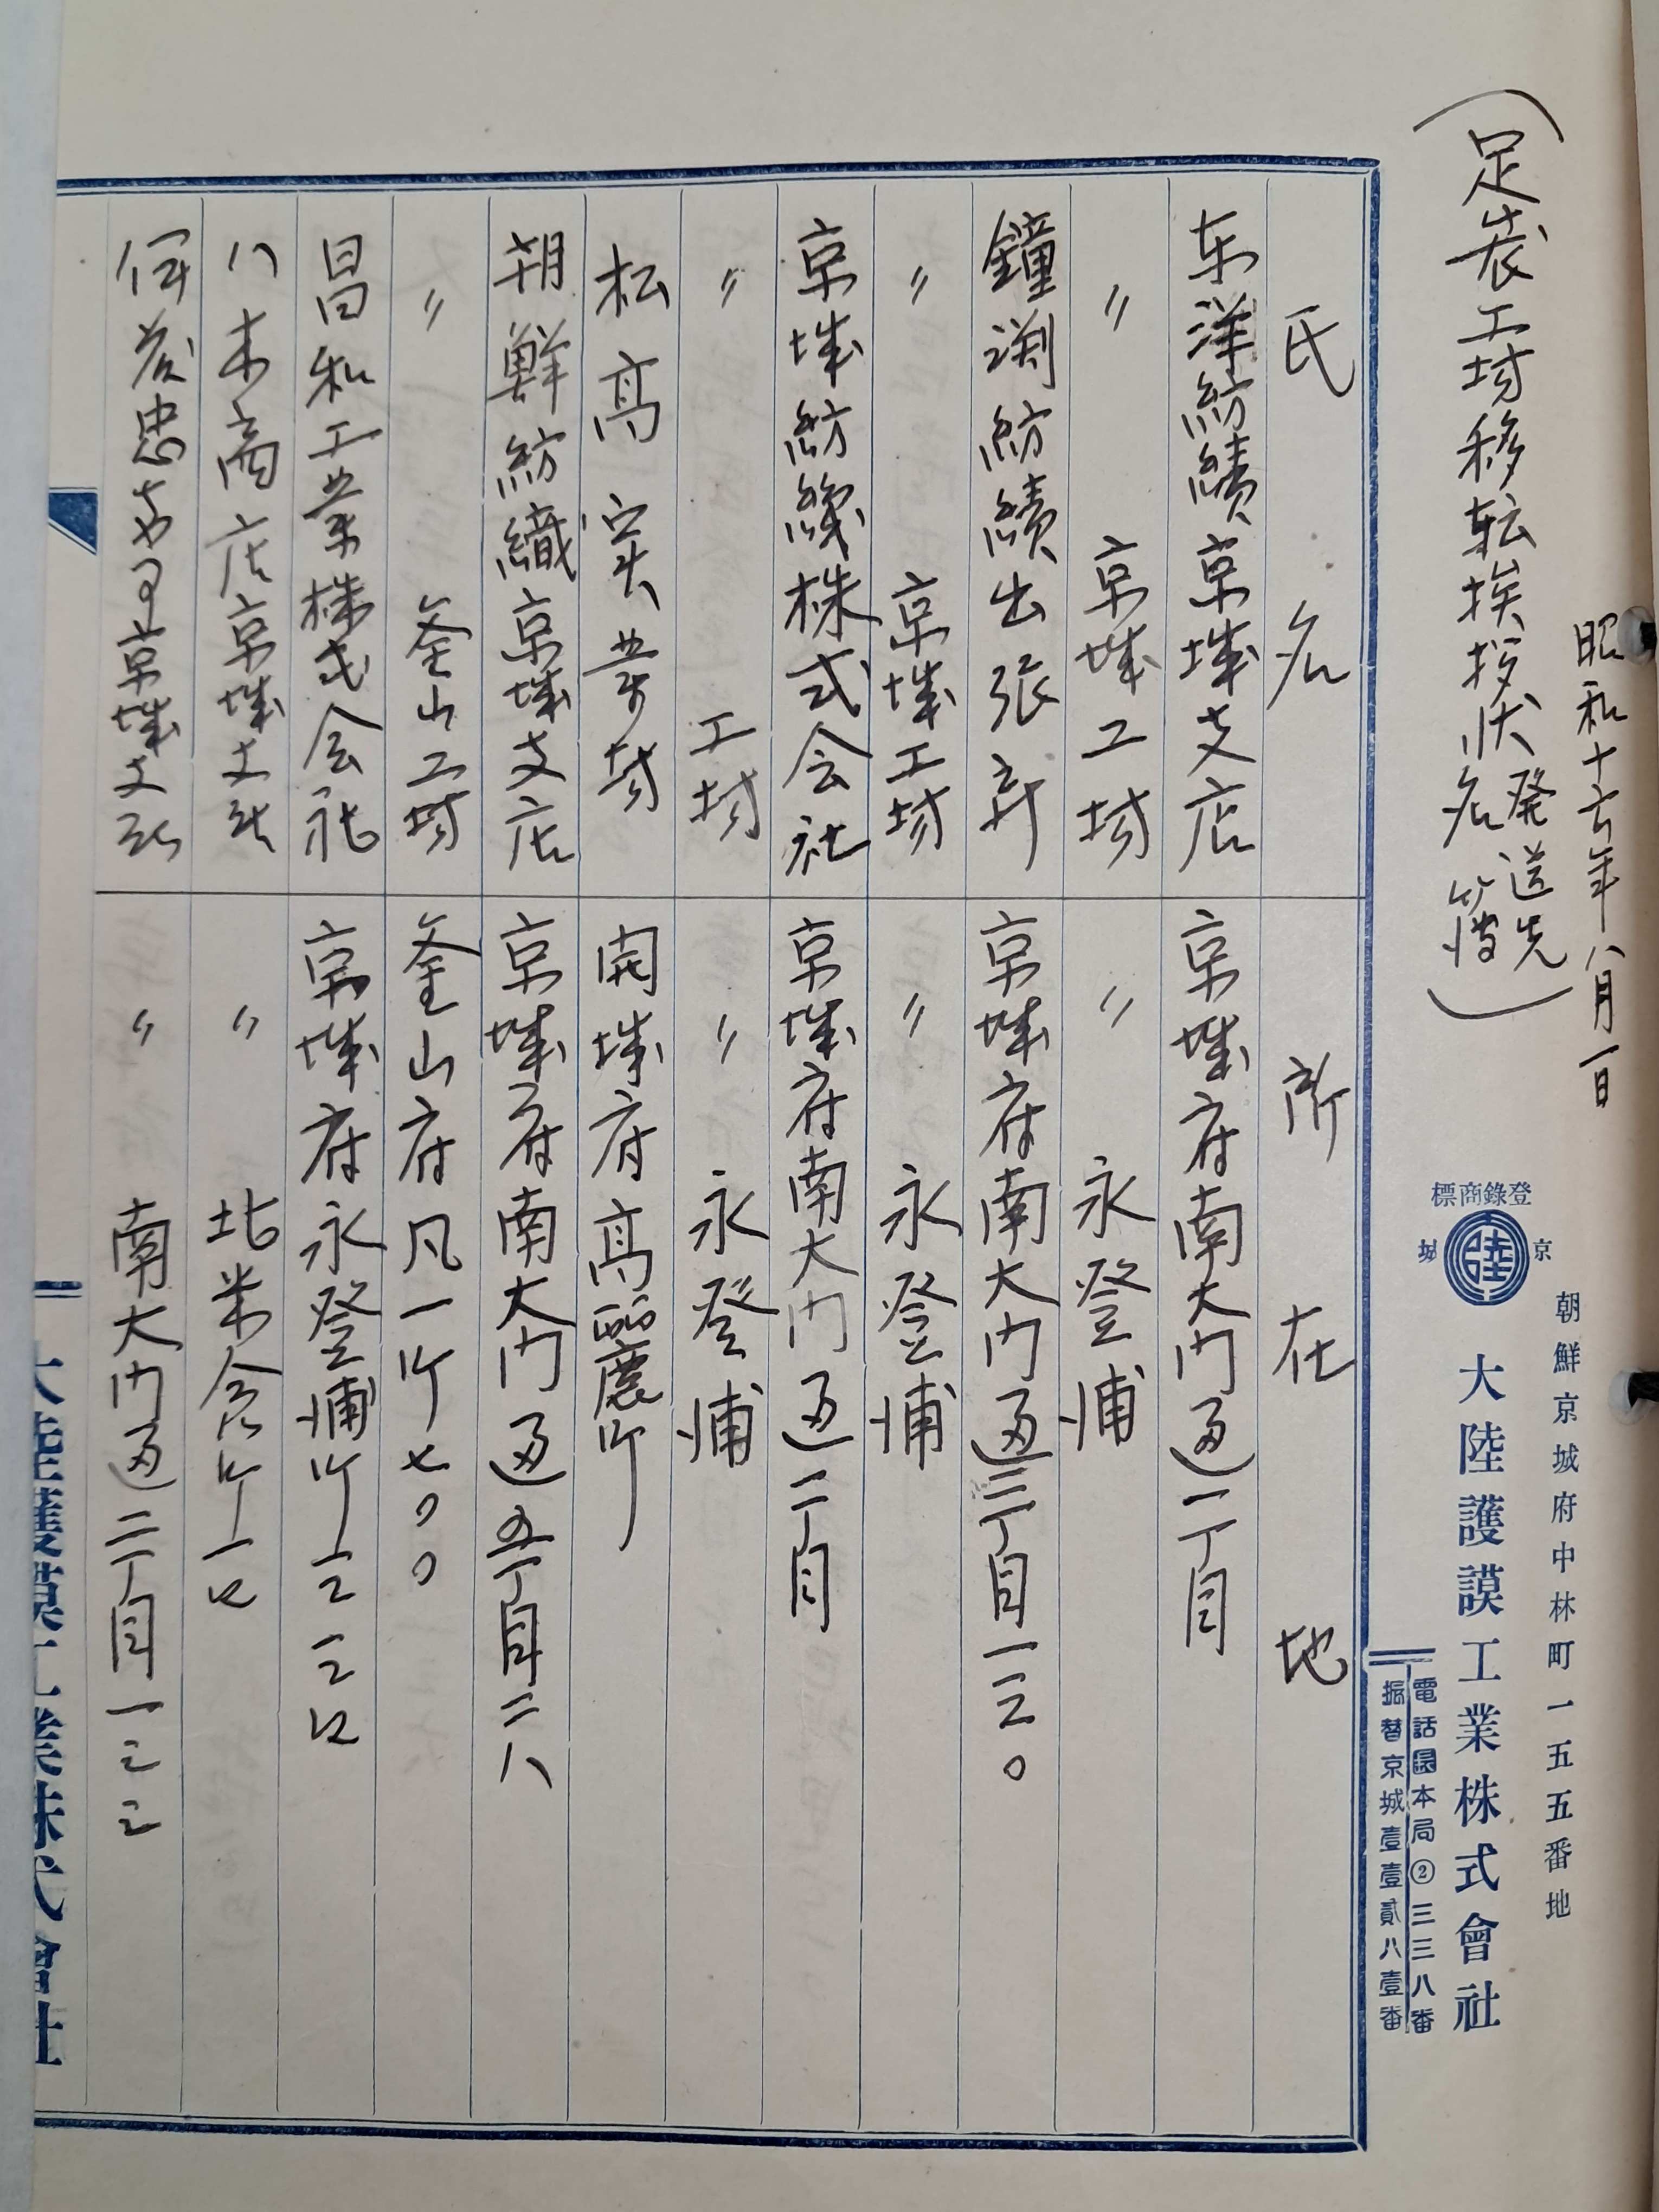 昭和十六年八月一日
(足袋工場移転挨拶状発送先名簿)
登錄商標
京城
陸
朝鮮京城府中林町一五五番地
大陸護謨工業株式會社
電話圓本局②三三八番
振替京城壹壹貳八壹番
氏名 所在地
东洋紡績京城支店 京城府南大门通一丁目
〃 京城工场 〃 永登浦
鐘渊紡績出張所 京城府南大门通三丁目一三〇
〃 京城工场 〃 永登浦
京城紡織株式会社 京城府南大门通二丁目
〃 工场 〃 永登浦
松高実業场 開城府高麗町
朝鮮紡織京城支店 京城府南大门通五丁目二八
〃 釜山工场 釜山府凡一町七〇〇
昌和工業株式会社 京城府永登浦町
八木商店京城支店 〃 北米倉町一七
伊藤忠 京城支店 〃 南大门通二丁目一三三
大陸護謨工業株式會社